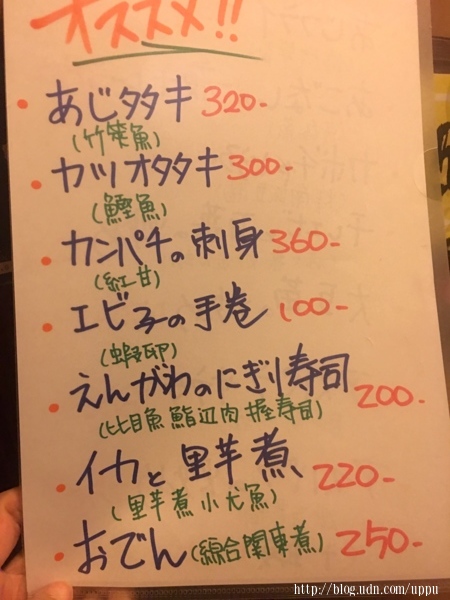 オススメ!!
・あじタタキ 320-
(竹筴魚)
・カツオタタキ 300-
(鰹魚)
・カンパチの刺身 360-
(紅甘)
・エビ子の手巻 100-
(蝦卵)
・えんがわのにぎり寿司 200-
(比目魚鰭辺肉握寿司)
・イカと里芋煮 220-
(里芋煮小尤魚)
・おでん(綜合関東煮) 250-
http://blog.udn.com/uppu